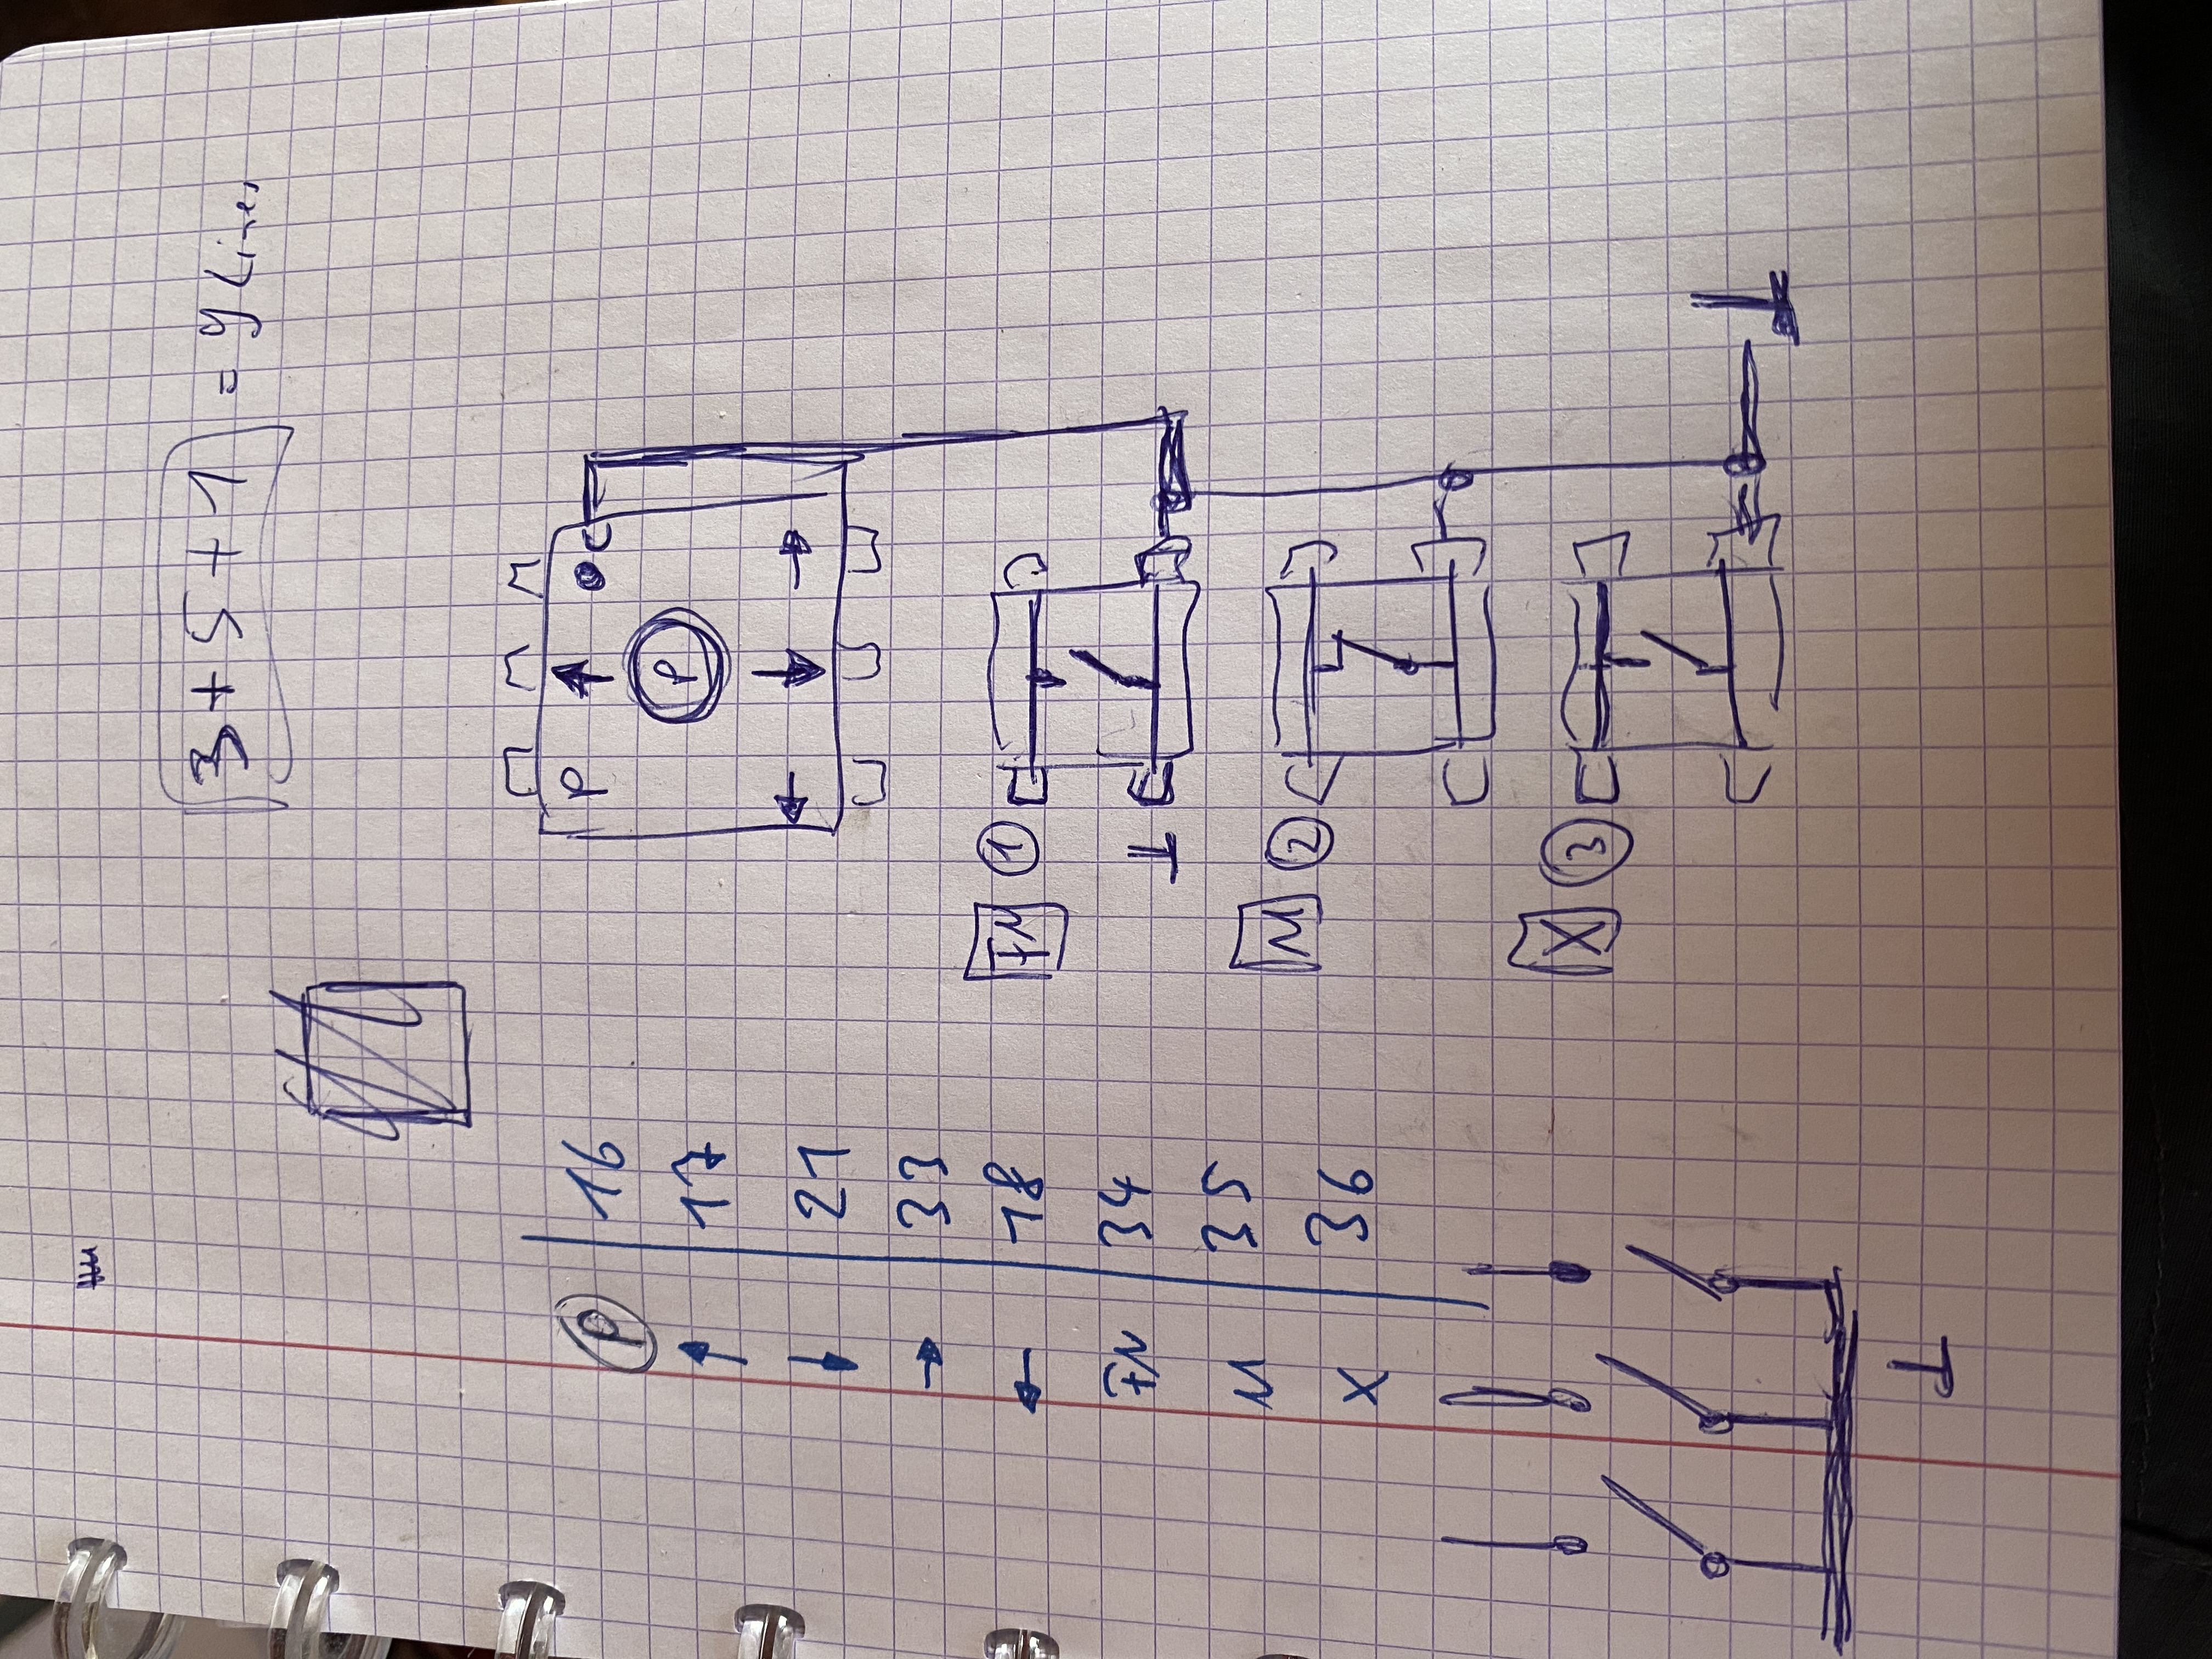 3 + 5 + 1 = 9 Lines
P 16
↑ 17
↓ 21
→ 33
← 18
FN 34
M 35
X 36
⊥
P ↑ ● C
P
← ↓ →
FN 1
⊥
M 2
X 3
⊥